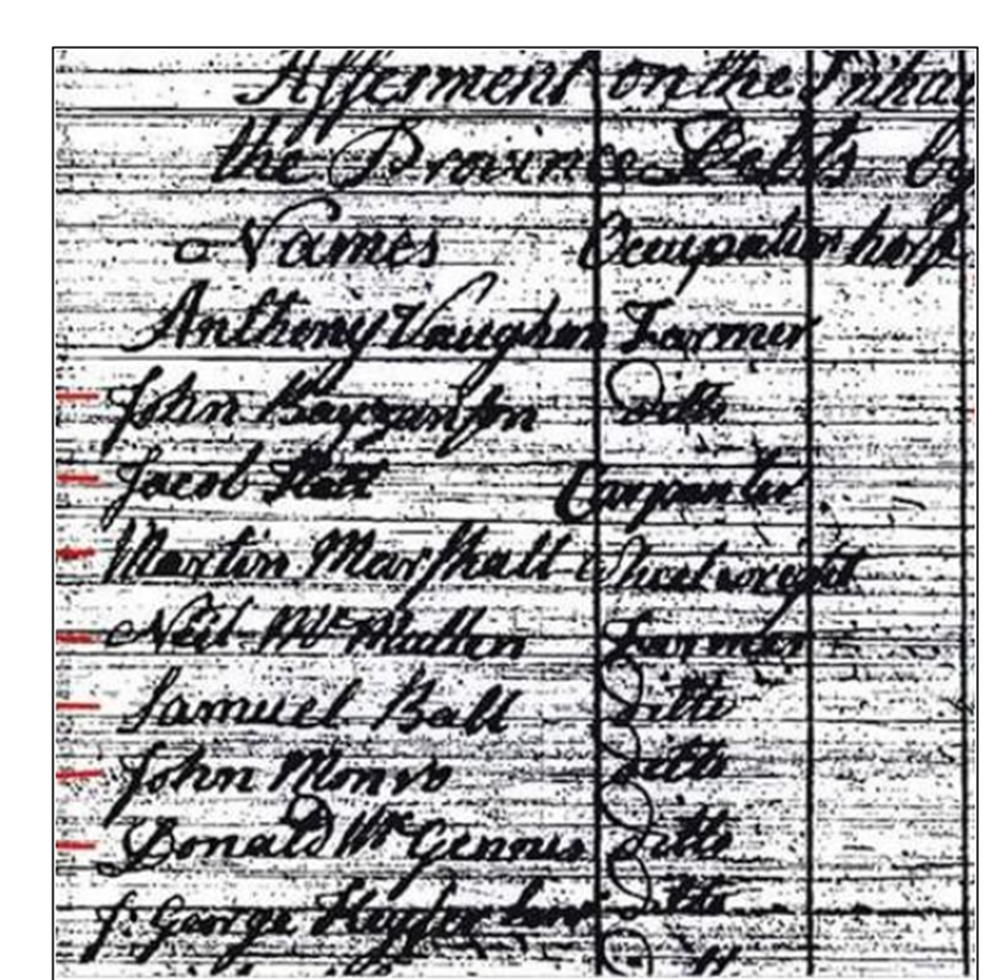 Assesment on the Inha
the Province Debts by
Names Occupation
Anthony Vaughan Farmer
John ditto
Jacob Carpenter
Martin Marshall Wheelwright
Neil McMullen Farmer
Samuel Ball ditto
John Monro ditto
Donald McGennus ditto
George ditto